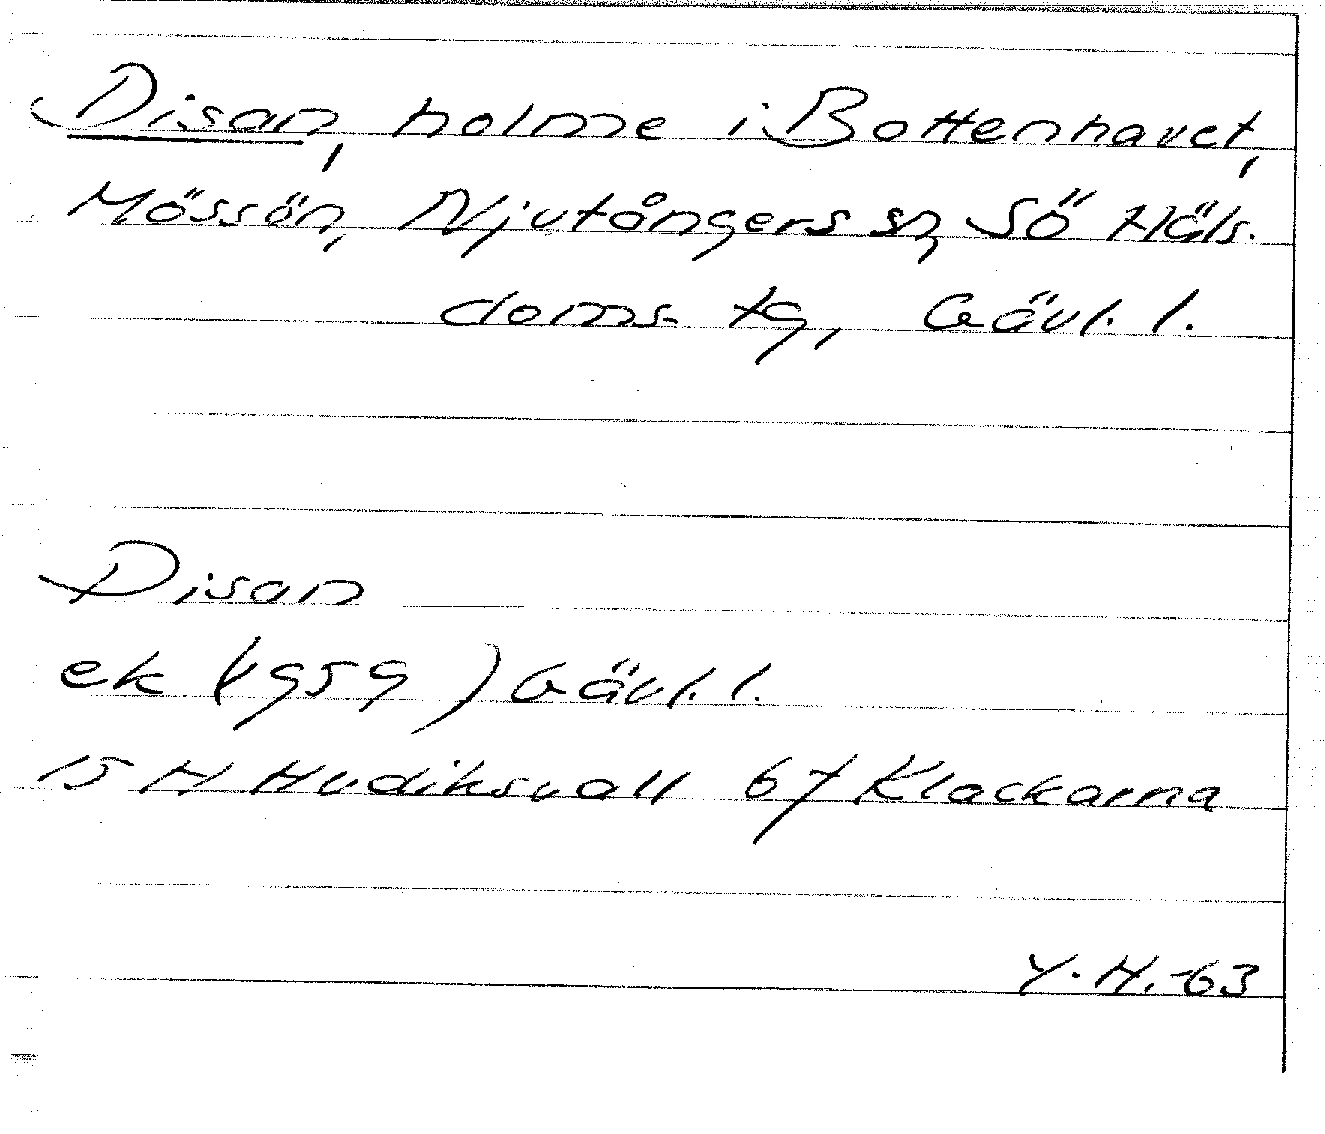 Disan, holme i Bottenhavet,
Mössön, Njutångers sn, Sö Häls.
doms tg, Gävl. l.
Disan
ek (1959) Gävl. l.
15 H Hudiksvall 6f Klackarna
Y. H. -63